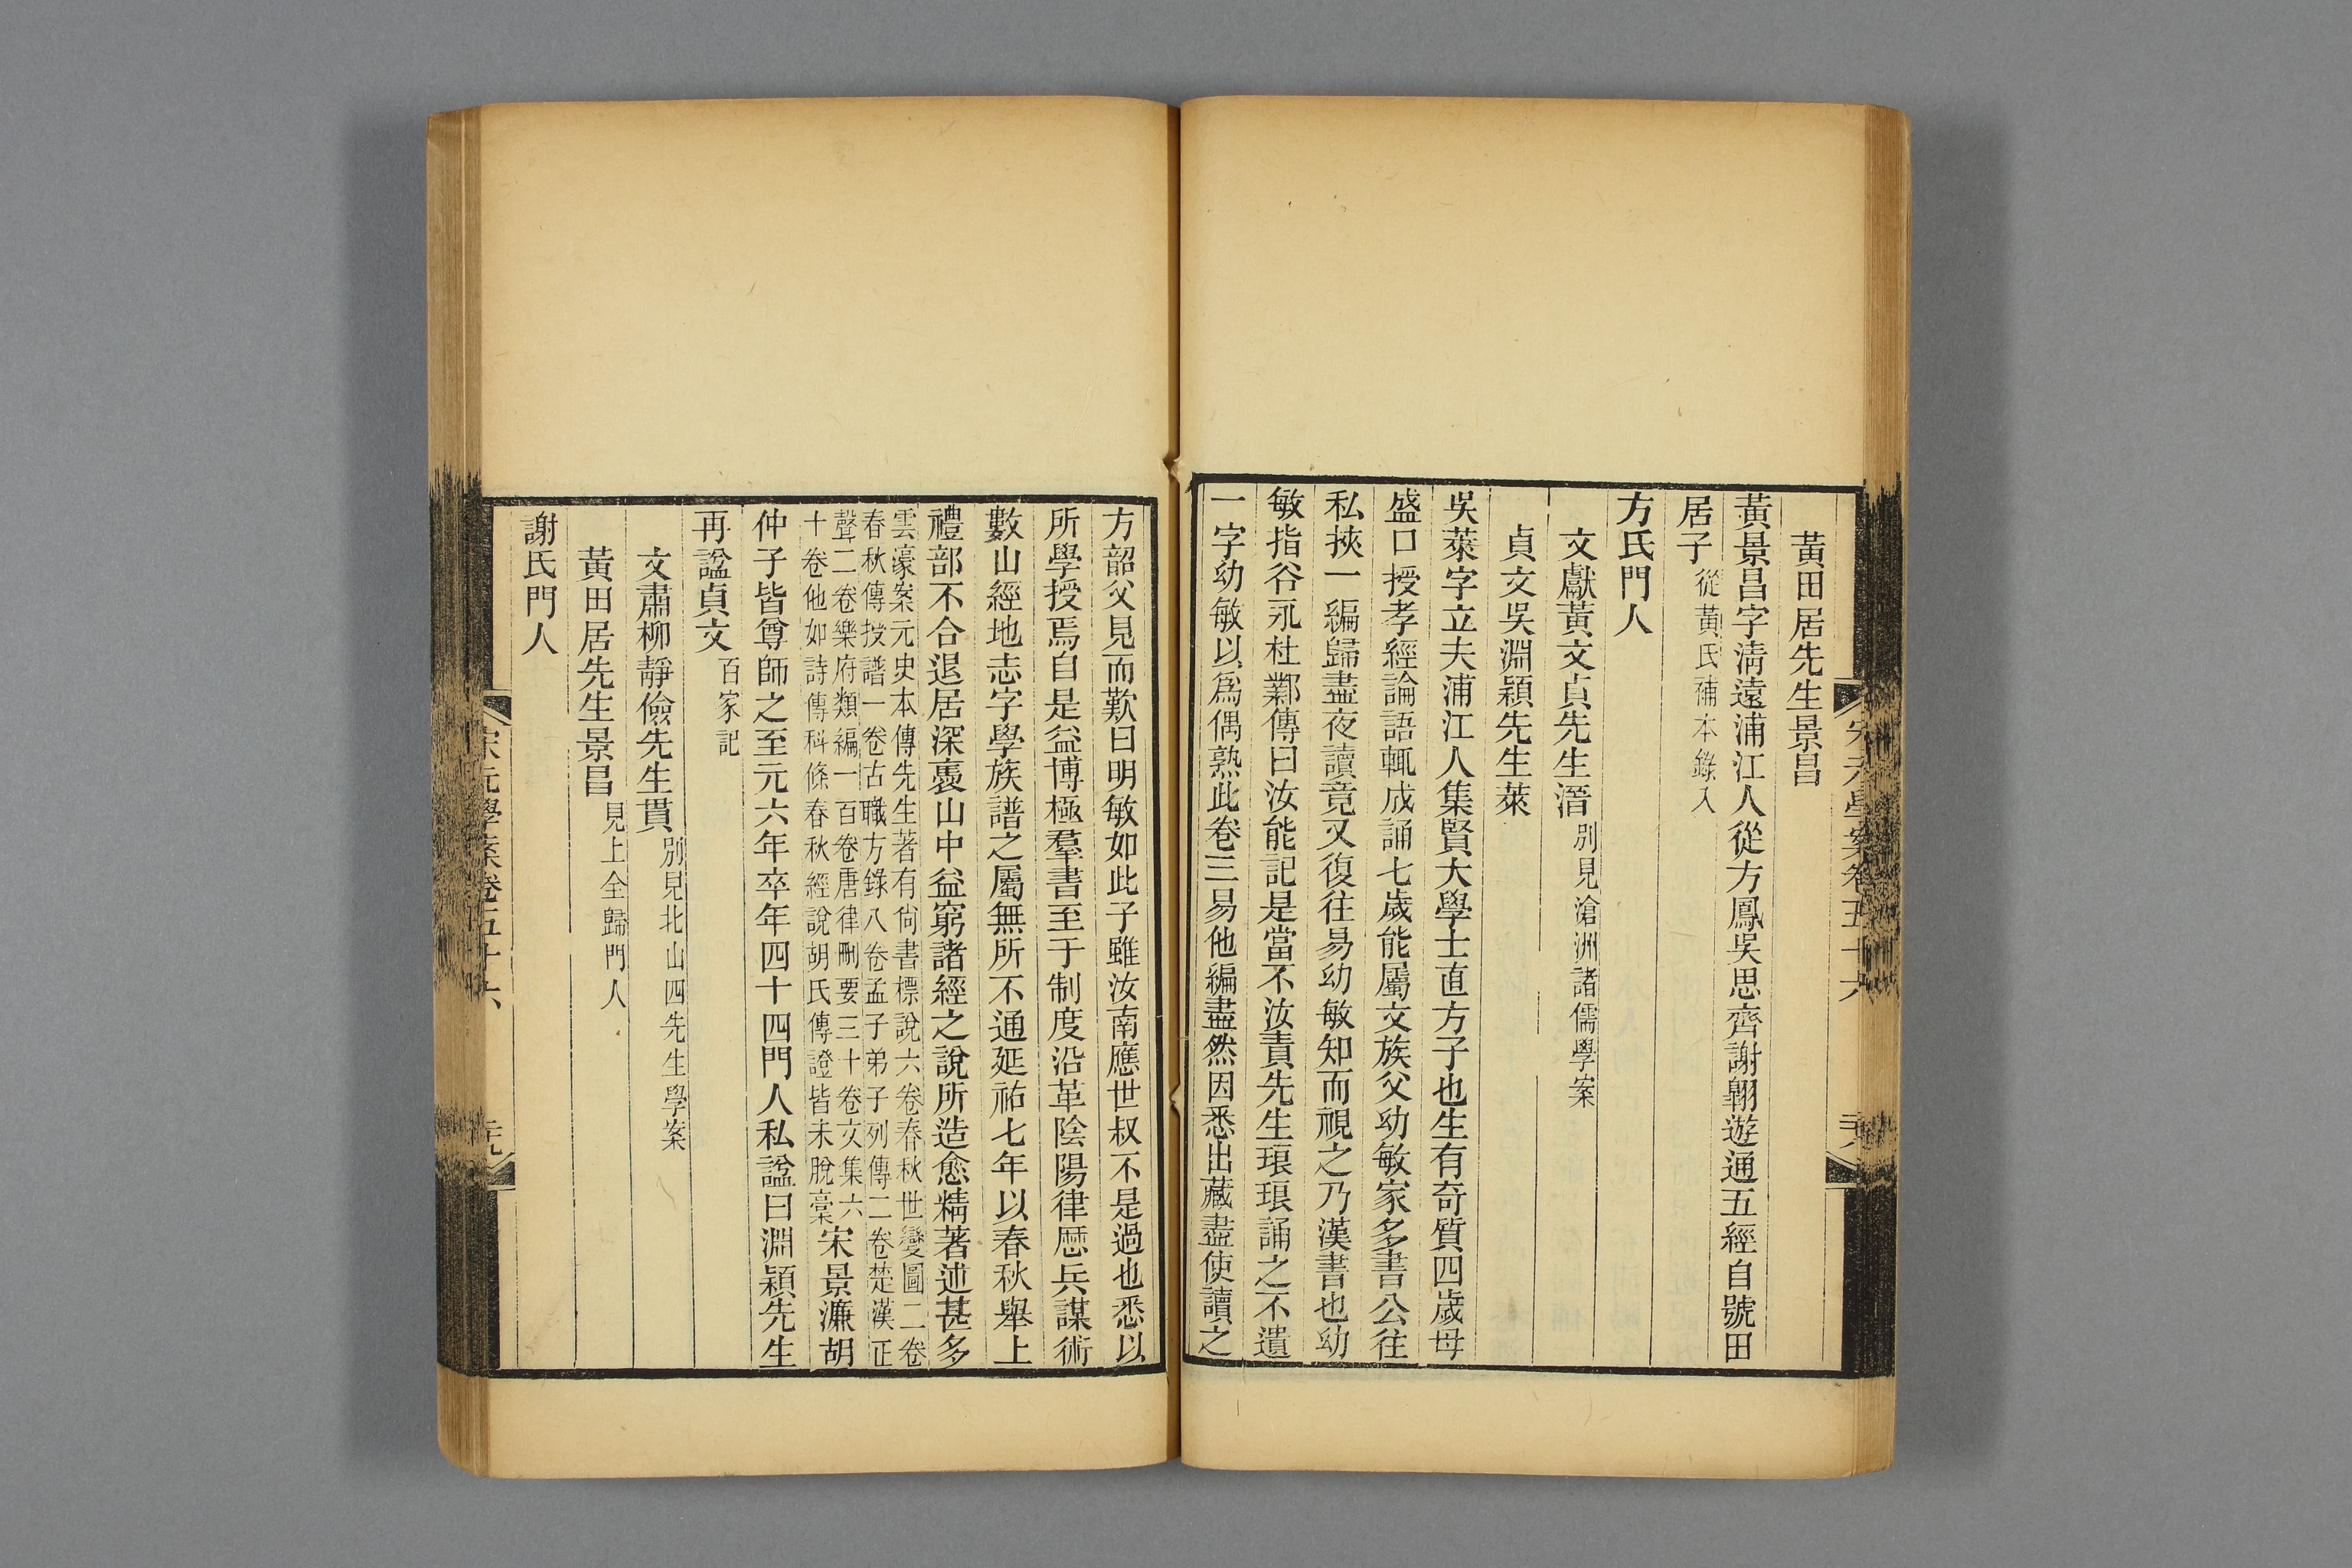 宋元學案卷五十六
黃田居先生景昌
黃景昌字淸遠浦江人從方鳳吳思齊謝翺遊通五經自號田
居子從黃氏補本錄入
方氏門人
文獻黃文貞先生溍別見滄洲諸儒學案
貞文吳淵穎先生萊
吳萊字立夫浦江人集賢大學士直方子也生有奇質四歲母
盛口授孝經論語輒成誦七歲能屬文族父幼敏家多書公往
私挾一編歸盡夜讀竟又復往易幼敏知而視之乃漢書也幼
敏指谷永杜鄴傳曰汝能記是當不汝責先生琅琅誦之不遺
一字幼敏以爲偶熟此卷三易他編盡然因悉出藏書使讀之
方韶父見而歎曰明敏如此子雖汝南應世叔不是過也悉以
所學授焉自是益博極羣書至于制度沿革陰陽律厯兵謀術
數山經地志字學族譜之屬無所不通延祐七年以春秋舉上
禮部不合退居深裛山中益窮諸經之說所造愈精著述甚多
雲濠案元史本傳先生著有尙書標說六卷春秋世變圖二卷
春秋傳授譜一卷古職方錄八卷孟子弟子列傳二卷楚漢正
聲二卷樂府類編一百卷唐律刪要三十卷文集六
十卷他如詩傳科條春秋經說胡氏傳證皆未脫稾宋景濂胡
仲子皆尊師之至元六年卒年四十四門人私諡曰淵穎先生
再諡貞文百家記
文肅柳靜儉先生貫別見北山四先生學案
黃田居先生景昌見上全歸門人
謝氏門人
宋元學案卷五十六